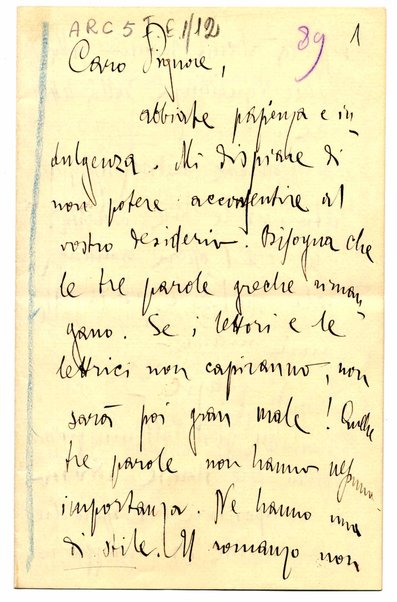 ARC 5 I E 1/12
89 1
Caro Signore,
abbiate pazienza e in
dulgenza. Mi dispiace di
non potere accosentire al
vostro desiderio. Bisogna che
le tre parole greche riman
gano. Se i lettori e le
lettrici non capiranno, non
sarà poi gran male! Quelle
tre parole non hanno nessuna
importanza. Ne hanno una
di stile. Il romanzo non